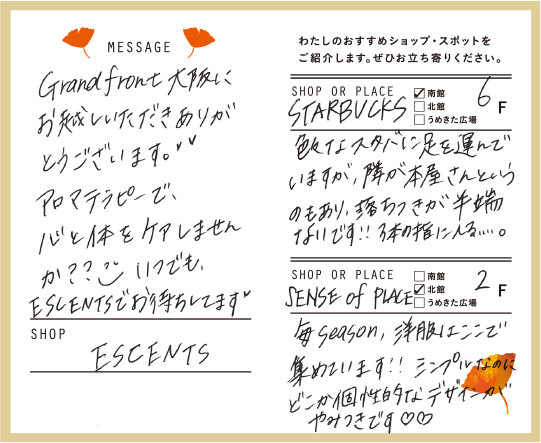 MESSAGE
Grandfront大阪に
お越しいただきありが
とうございます。
アロマテラピーで、
心と体をケアしません
か?? いつでも、
ESCENTSでお待ちしてます♥
SHOP
ESCENTS
わたしのおすすめショップ・スポットを
ご紹介します。ぜひお立ち寄りください。
SHOP OR PLACE ☑南館
STARBUCKS □北館 6F
□うめきた広場
色々なスタバに足を運んで
いますが、隣が本屋さんという
のもあり、落ちつきが半端
ないです!! 3本の指に入る……。
SHOP OR PLACE □南館
SENSE of PLACE ☑北館 2F
□うめきた広場
毎season, 洋服はここで
集めています!! シンプルなのに
どこか個性的なデザインが
やみつきです♡♡